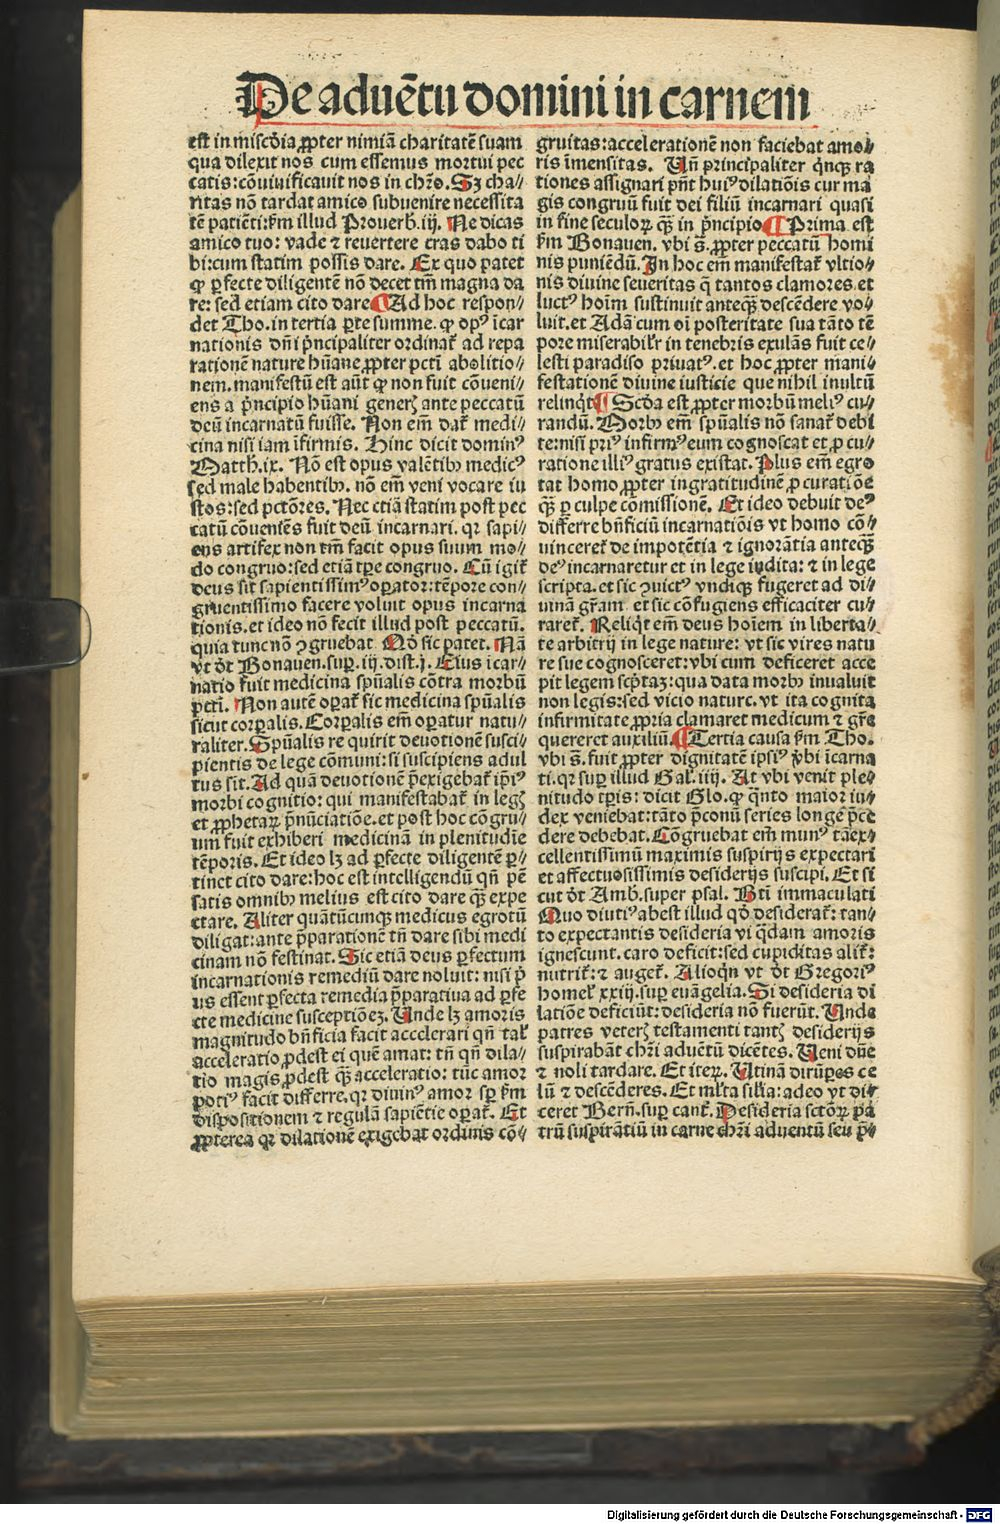 De aduētu domini in carnem
est in misc̄dia ꝓpter nimiā charitatē suam
qua dilexit nos cum essemus mortui pec
catis: cōuiuificauit nos in chr̄o. Sꝫ cha⸗
ritas nō tardat amico subuenire necessita
tē patiēti: km̄ illud Prouerb̄. iij. Ne dicas
amico tuo: vade ⁊ reuertere cras dabo ti
bi: cum statim possis dare. Ex quo patet
ꝙ ꝑfecte diligentē nō decet tm̄ magna da
re: sed etiam cito dare ¶ Ad hoc respon⸗
det Tho. in tertia ꝑte summe. ꝙ opꝰ īcar
nationis dn̄i pͥncipaliter ordinat̄ ad repa
rationē nature hūane ꝓpter pctī abolitio⸗
nem. manifestū est aūt ꝙ non fuit cōueni⸗
ens a pͥncipio hūani generꝭ ante peccatū
deū incarnatū fuisse. Non em̄ dat̄ medi⸗
cina nisi iam īfirmis. Hinc dicit dominꝰ
Matth̄. ix. Nō est opus valētibꝰ medicꝰ
sed male habentibꝰ. nō em̄ veni vocare iu
stos: sed pctōres. Nec etiā statim post pec
catū cōuentēs fuit deū incarnari. qꝛ sapi⸗
ens artifex non tm̄ facit opus suum mo⸗
do congruo: sed etiā tꝑe congruo. Cū igit̄
deus sit sapientissimꝰ oꝑator: tēpore con⸗
gruentissimo facere voluit opus incarna
tionis. et ideo nō fecit illud post peccatū.
quia tunc nō ꝯgruebat Qd̄ sic patet. Nā
vt dt̄ Bonauen. suꝑ. iij. dist. j. Eius icar⸗
natio fuit medicina spūalis cōtra morbū
pctī. Non autē oꝑat̄ sic medicina spūalis
sicut corꝑalis. Corꝑalis em̄ oꝑatur natu⸗
raliter. Spūalis re quirit deuotionē susci⸗
pientis de lege cōmuni: si suscipiens adul
tus sit. Ad quā deuotionē p̄exigebat̄ ip̄iꝰ
morbi cognitio: qui manifestabat̄ in legꝭ
et ꝓphetaꝝ p̄nūciatiōe. et post hoc cōgru⸗
um fuit exhiberi medicinā in plenitudīe
tēporis. Et ideo lꝫ ad ꝑfecte diligentē ꝑ⸗
tinet cito dare: hoc est intelligendū qn̄ pē
satis omnibꝰ melius est cito dare qꝫ̄ expe
ctare. Aliter quātūcunqꝫ medicus egrotū
diligat: ante p̄parationē tn̄ dare sibi medi
cinam nō festinat. Sic etiā deus ꝑfectum
incarnationis remediū dare noluit: nisi pͥ
us essent ꝑfecta remedia p̄paratiua ad ꝑfe
cte medicine susceptiōeꝫ. Unde lꝫ amoris
magnitudo bn̄ficia facit accelerari qn̄ tal̄
acceleratio ꝓdest ei quē amat: tn̄ qn̄ dila⸗
tio magis ꝓdest qꝫ̄ acceleratio: tūc amor
potiꝰ facit differre. qꝛ diuinꝰ amor sꝑ km̄
dispositionem ⁊ regulā sapiētie oꝑat̄. Et
ꝓpterea qꝛ dilationē exigebat ordinis cō⸗
gruitas: accelerationē non faciebat amo⸗
ris īmensitas. Un̄ principaliter qͥnqꝫ ra
tiones assignari pn̄t huiꝰ dilatiōis cur ma
gis congruū fuit dei filiū incarnari quasi
in fine seculoꝝ qꝫ̄ in pͥncipio ¶ Prima est
km̄ Bonauen. vbi s̄. ꝓpter peccatū homi
nis puniēdū. In hoc em̄ manifestat̄ vltio⸗
nis diuine seueritas q̄ tantos clamores et
luctꝰ hoīm sustinuit anteqꝫ̄ descēdere vo⸗
luit. et Adā cum oī posteritate sua tāto tē
pore miserabil̄r in tenebris exulās fuit ce⸗
lesti paradiso priuatꝰ. et hoc ꝓpter mani⸗
festationē diuine iusticie que nihil inultū
relinqͥt ¶ Scd̄a est ꝓpter morbū meliꝰ cu⸗
randū. Morbꝰ em̄ spūalis nō sanat̄ debi
te: nisi priꝰ infirmꝰ eum cognoscat et ꝓ cu⸗
ratione illiꝰ gratus existat. Plus em̄ egro
tat homo ꝓpter ingratitudinē ꝓ curatiōe
qꝫ̄ ꝑ culpe cōmissionē. Et ideo debuit deꝰ
differre bn̄ficiū incarnatiōis vt homo cō⸗
uinceret̄ de impotētia ⁊ ignorātia anteqꝫ̄
deꝰ incarnaretur et in lege indita: ⁊ in lege
scripta. et sic ꝯuictꝰ vndiqꝫ fugeret ad di⸗
uinā gr̄am et sic cōfugiens efficaciter cu⸗
raret̄. Reliqͥt em̄ deus hoīem in liberta⸗
te arbitrij in lege nature: vt sic vires natu
re sue cognosceret: vbi cum deficeret acce
pit legem sc̄ptaꝫ: qua data morbꝰ inualuit
non legis: sed vicio nature. vt ita cognita
infirmitate ꝓpria clamaret medicum ⁊ gr̄e
quereret auxiliū. ¶ Tertia causa km̄ Tho.
vbi s̄. fuit ꝓpter dignitatē ipsiꝰ v̄bi īcarna
ti. qꝛ suꝑ illud Gal̄. iiij. At vbi venit ple⸗
nitudo tꝑis: dicit Glo. ꝙ qͣnto maior iu⸗
dex veniebat: tāto p̄conū series longe p̄ce
dere debebat. Cōgruebat em̄ munꝰ tā ex⸗
cellentissimū maximis suspirijs expectari
et affectuosissimis desiderijs suscipi. Et si
cut dt̄ Amb. super psal. Bt̄i immaculati
Quo diutiꝰ abest illud qd̄ desiderat̄: tan⸗
to expectantis desideria vi qͣdam amoris
ignescunt. caro deficit: sed cupiditas alit̄:
nutrit̄: ⁊ auget̄. Alioqͥn vt dt̄ Gregoriꝰ
homel̄. xxiij. suꝑ euāgelia. Si desideria di
latiōe deficiūt: desideria nō fuerūt. Unde
patres veterꝭ testamenti tantꝭ desiderijs
suspirabāt chr̄i aduētū dicētes. Ueni dn̄e
⁊ noli tardare. Et iteꝝ. Utinā dirūperes ce
lū ⁊ descēderes. Et ml̄ta sil̄ia: adeo vt di⸗
ceret Bern̄. suꝑ cant̄. Desideria sctōꝝ pa
trū suspirātiū in carne chr̄i aduentū seu p̄⸗
Digitalisierung gefördert durch die Deutsche Forschungsgemeinschaft - DFG